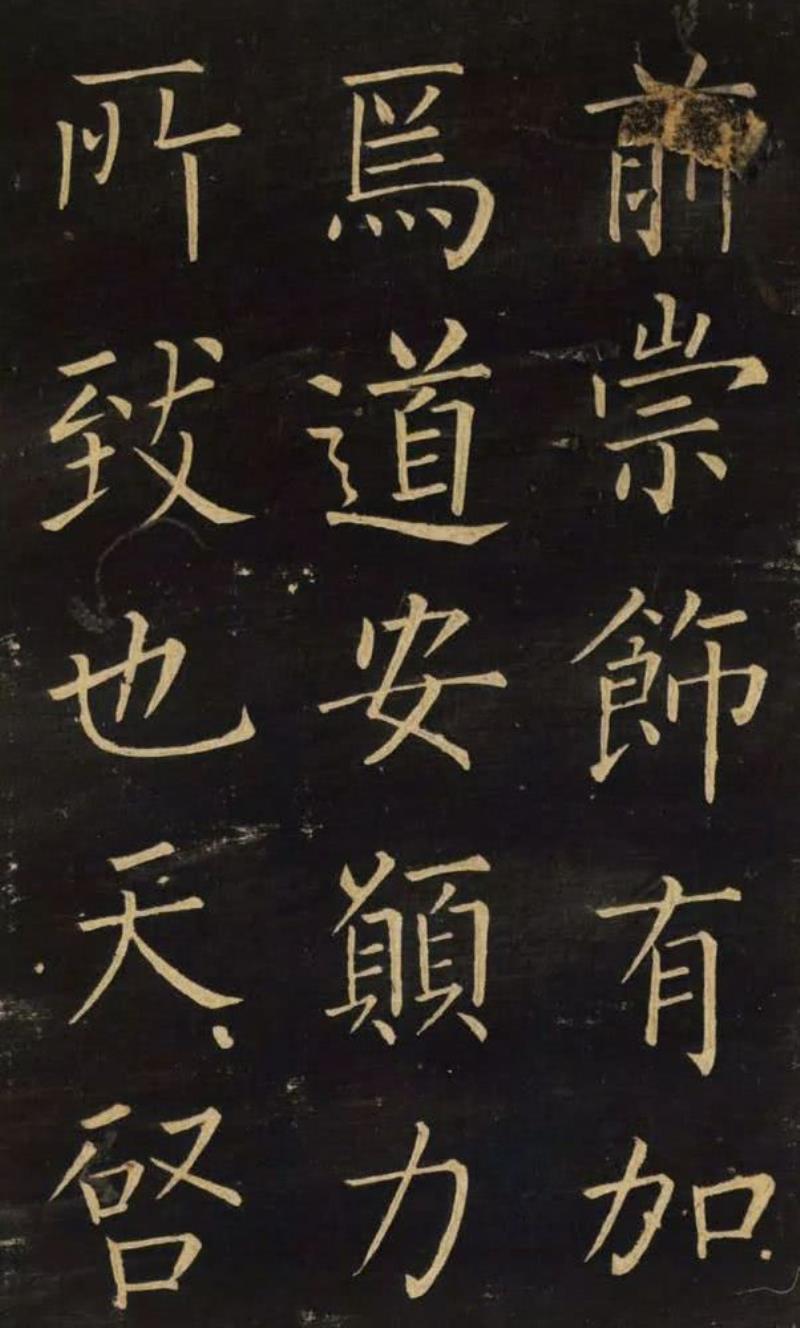 前崇飾有加
爲道安願力
所致也天啓